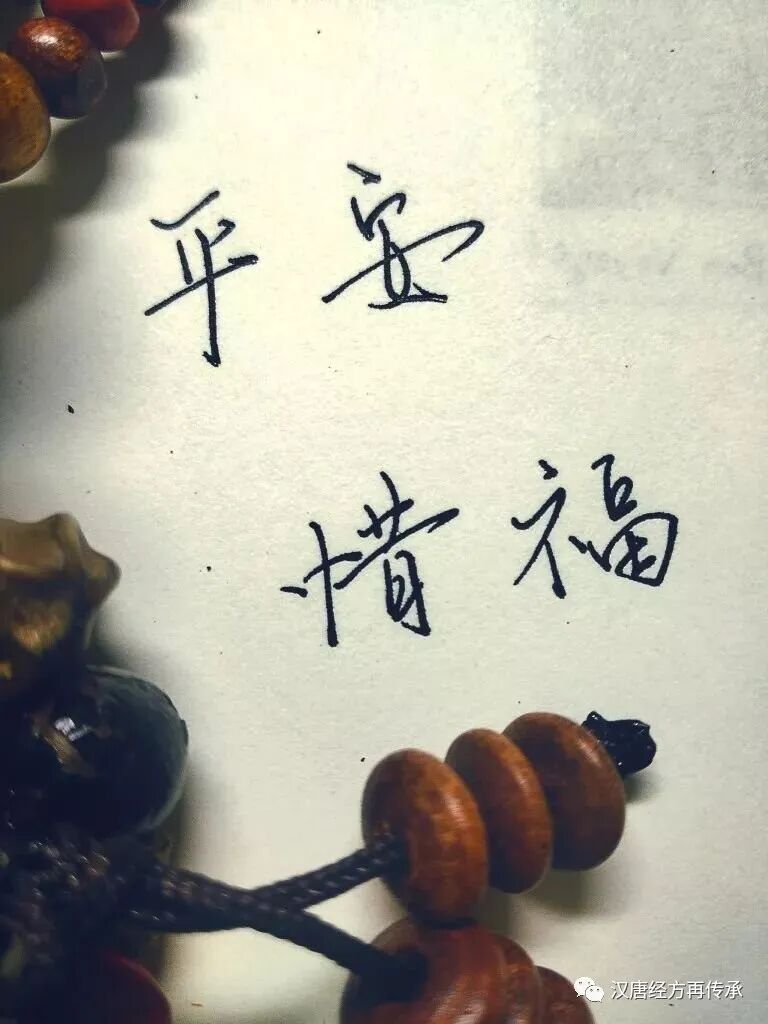 平安
惜福
汉唐经方再传承